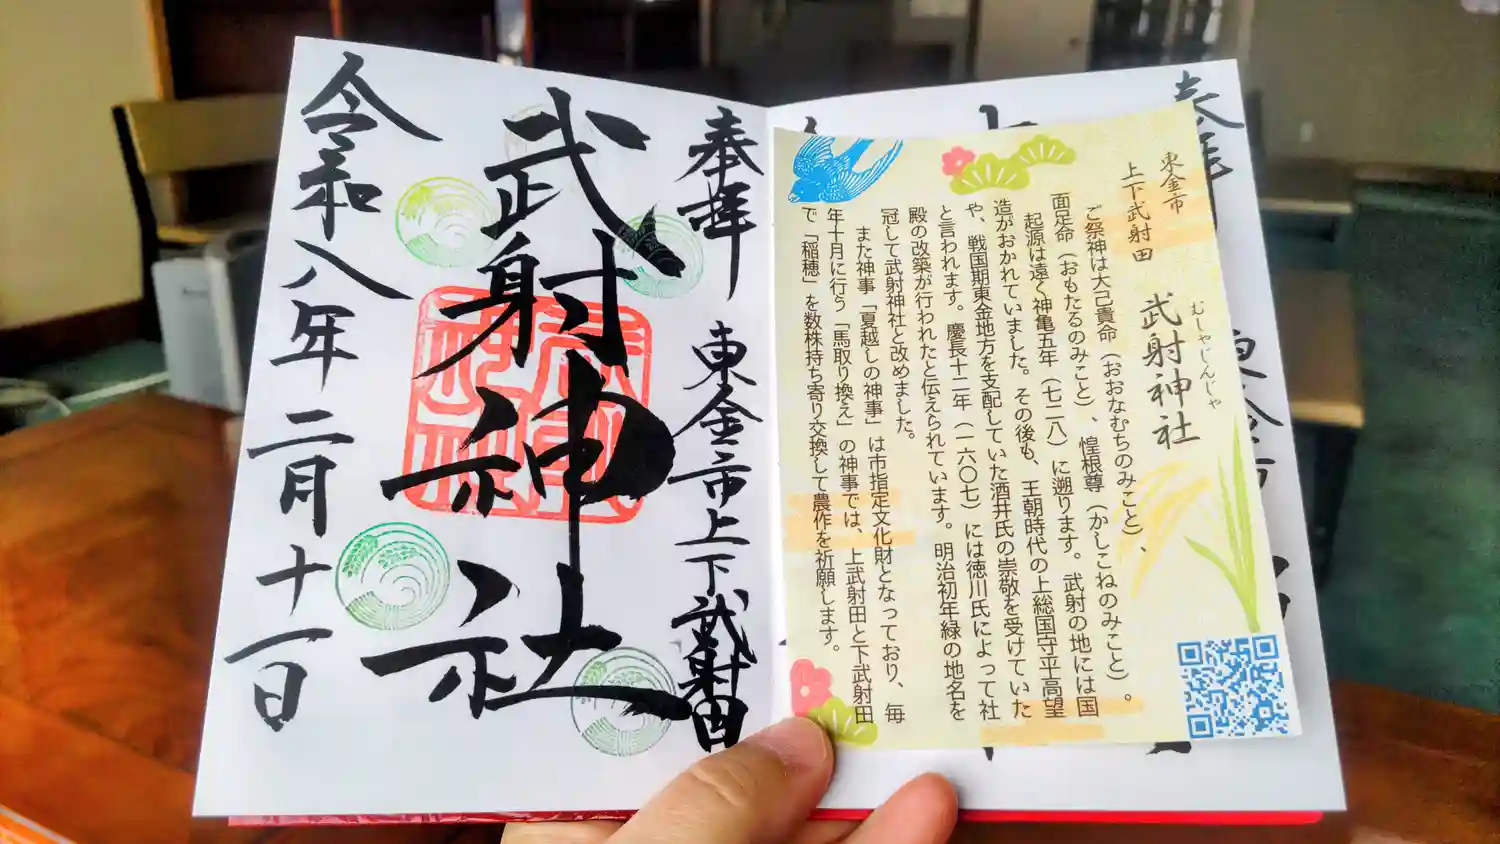 奉拝
東金市上下武射田
武射神社
令和八年二月十一日
東金市
上下武射田
むしゃじんじゃ
武射神社
ご祭神は大己貴命（おおなむちのみこと）、
面足命（おもたるのみこと）、惶根尊（かしこねのみこと）。
起源は遠く神亀五年（七二八）に遡ります。武射の地には国
造がおかれていました。その後も、王朝時代の上総国守平高望
や、戦国期東金地方を支配していた酒井氏の崇敬を受けていた
と言われます。慶長十二年（一六〇七）には徳川氏によって社
殿の改築が行われたと伝えられています。明治初年緑の地名を
冠して武射神社と改めました。
また神事「夏越しの神事」は市指定文化財となっており、毎
年十月に行う「馬取り換え」の神事では、上武射田と下武射田
で「稲穂」を数株持ち寄り交換して農作を祈願します。
奉拝